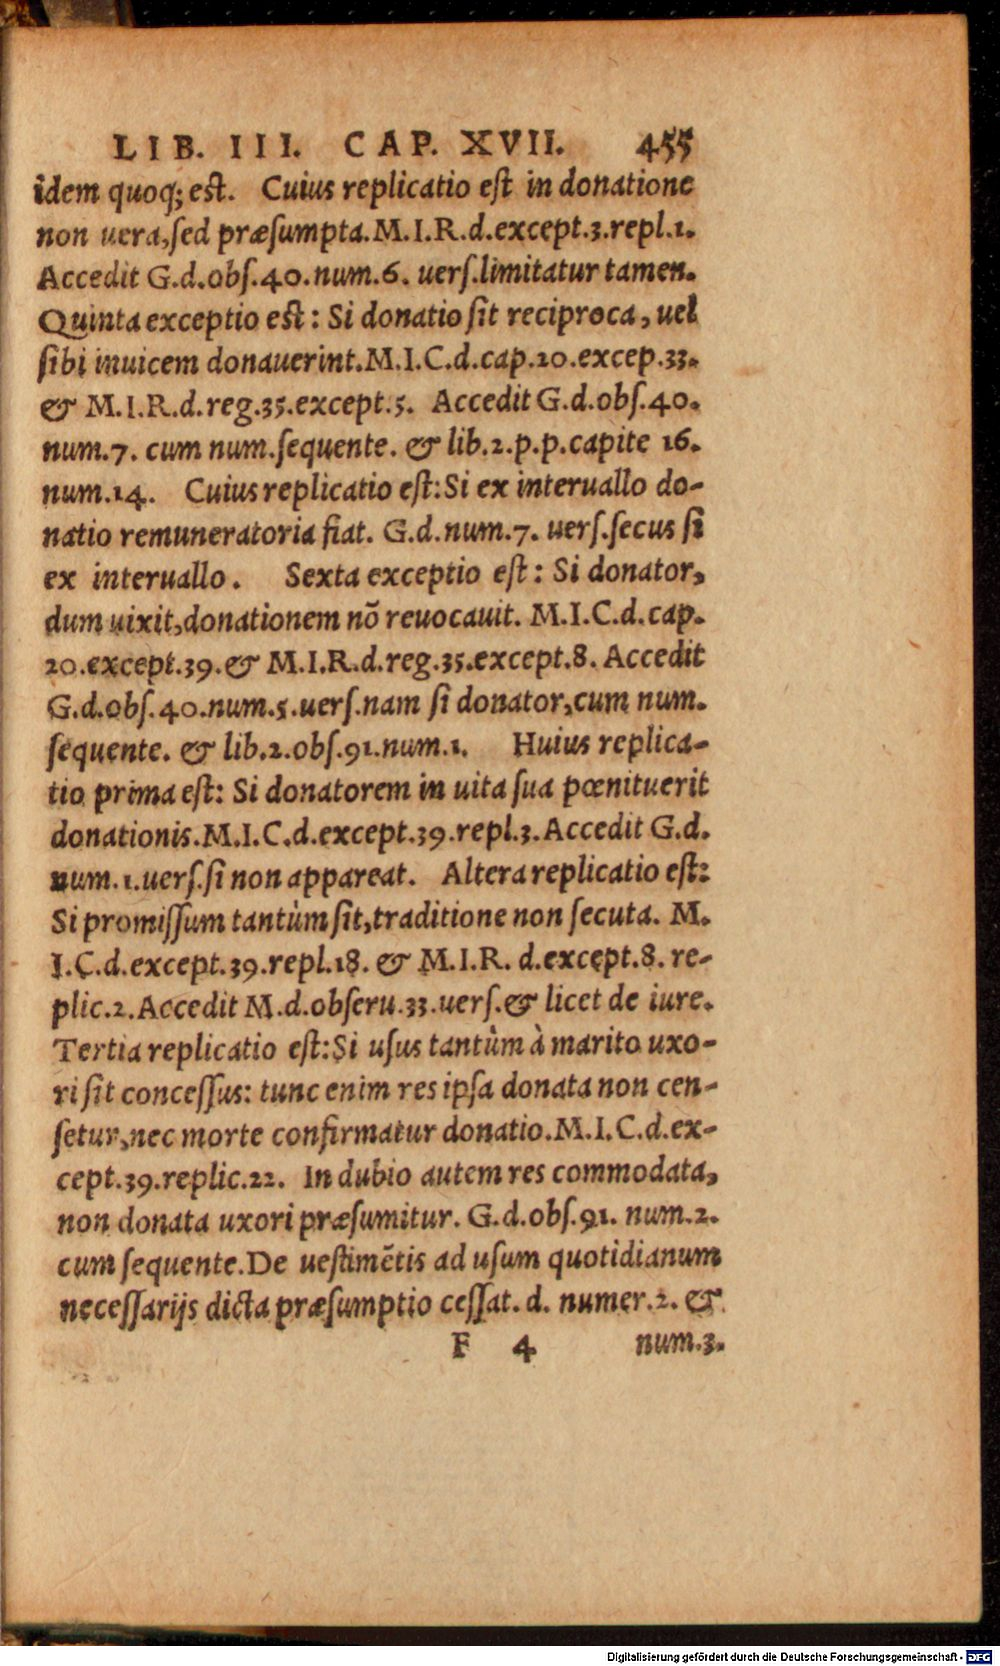 LIB. III. CAP. XVII. 455
idem quoq; est. Cuius replicatio est in donatione
non uera, sed præsumpta. M.I.R.d.except.3.repl.1.
Accedit G.d.obs.40.num.6. uers.limitatur tamen.
Quinta exceptio est: Si donatio sit reciproca, uel
sibi inuicem donauerint. M.I.C.d.cap.20.excep.33.
& M.I.R.d.reg.35.except.5. Accedit G.d.obs.40.
num.7. cum num.sequente. & lib.2.p.p.capite 16.
num.14. Cuius replicatio est: Si ex interuallo do-
natio remuneratoria fiat. G.d.num.7. uers.secus si
ex interuallo. Sexta exceptio est: Si donator,
dum uixit, donationem nõ reuocauit. M.I.C.d.cap.
20.except.39. & M.I.R.d.reg.35.except.8. Accedit
G.d.obs.40.num.5.uers.nam si donator, cum num.
sequente. & lib.2.obs.91.num.1. Huius replica-
tio prima est: Si donatorem in uita sua pœnituerit
donationis. M.I.C.d.except.39.repl.3. Accedit G.d.
num.1.uers.si non appareat. Altera replicatio est:
Si promissum tantùm sit, traditione non secuta. M.
I.C.d.except.39.repl.18. & M.I.R. d.except.8. re-
plic.2. Accedit M.d.obseru.33.uers. & licet de iure.
Tertia replicatio est: Si usus tantùm à marito uxo-
ri sit concessus: tunc enim res ipsa donata non cen-
setur, nec morte confirmatur donatio. M.I.C.d.ex-
cept.39.replic.22. In dubio autem res commodata,
non donata uxori præsumitur. G.d.obs.91. num.2.
cum sequente. De uestimẽtis ad usum quotidianum
necessarijs dicta præsumptio cessat. d. numer.2. &
F 4 num.3.
Digitalisierung gefördert durch die Deutsche Forschungsgemeinschaft - DFG